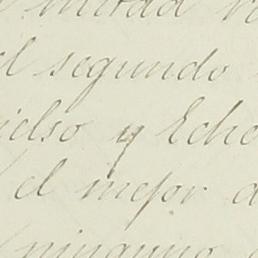 mitad
el segundo
y Echo
el mejor a
ninguno